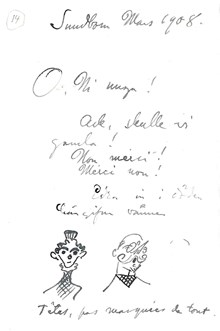 14
Sundborn Mars 1908.
O, Ni unga!
Ack, skulle vi
gamla!
Non merci!
Merci non!
in i döden
vänner
Têtes, pas marquées du tout